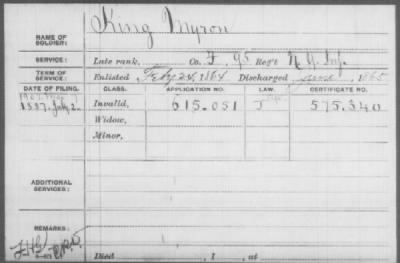 NAME OF SOLDIER: King Myron
SERVICE: Late rank, Co. F, 95 Reg't N.Y. Inf.
TERM OF SERVICE: Enlisted Feby 24, 1864 Discharged June, 1865
DATE OF FILING. CLASS. APPLICATION NO. LAW. CERTIFICATE NO.
1887, July 2 Invalid, 615.051 J 575.340
Widow,
Minor,
ADDITIONAL SERVICES:
REMARKS:
Died , 1 , at